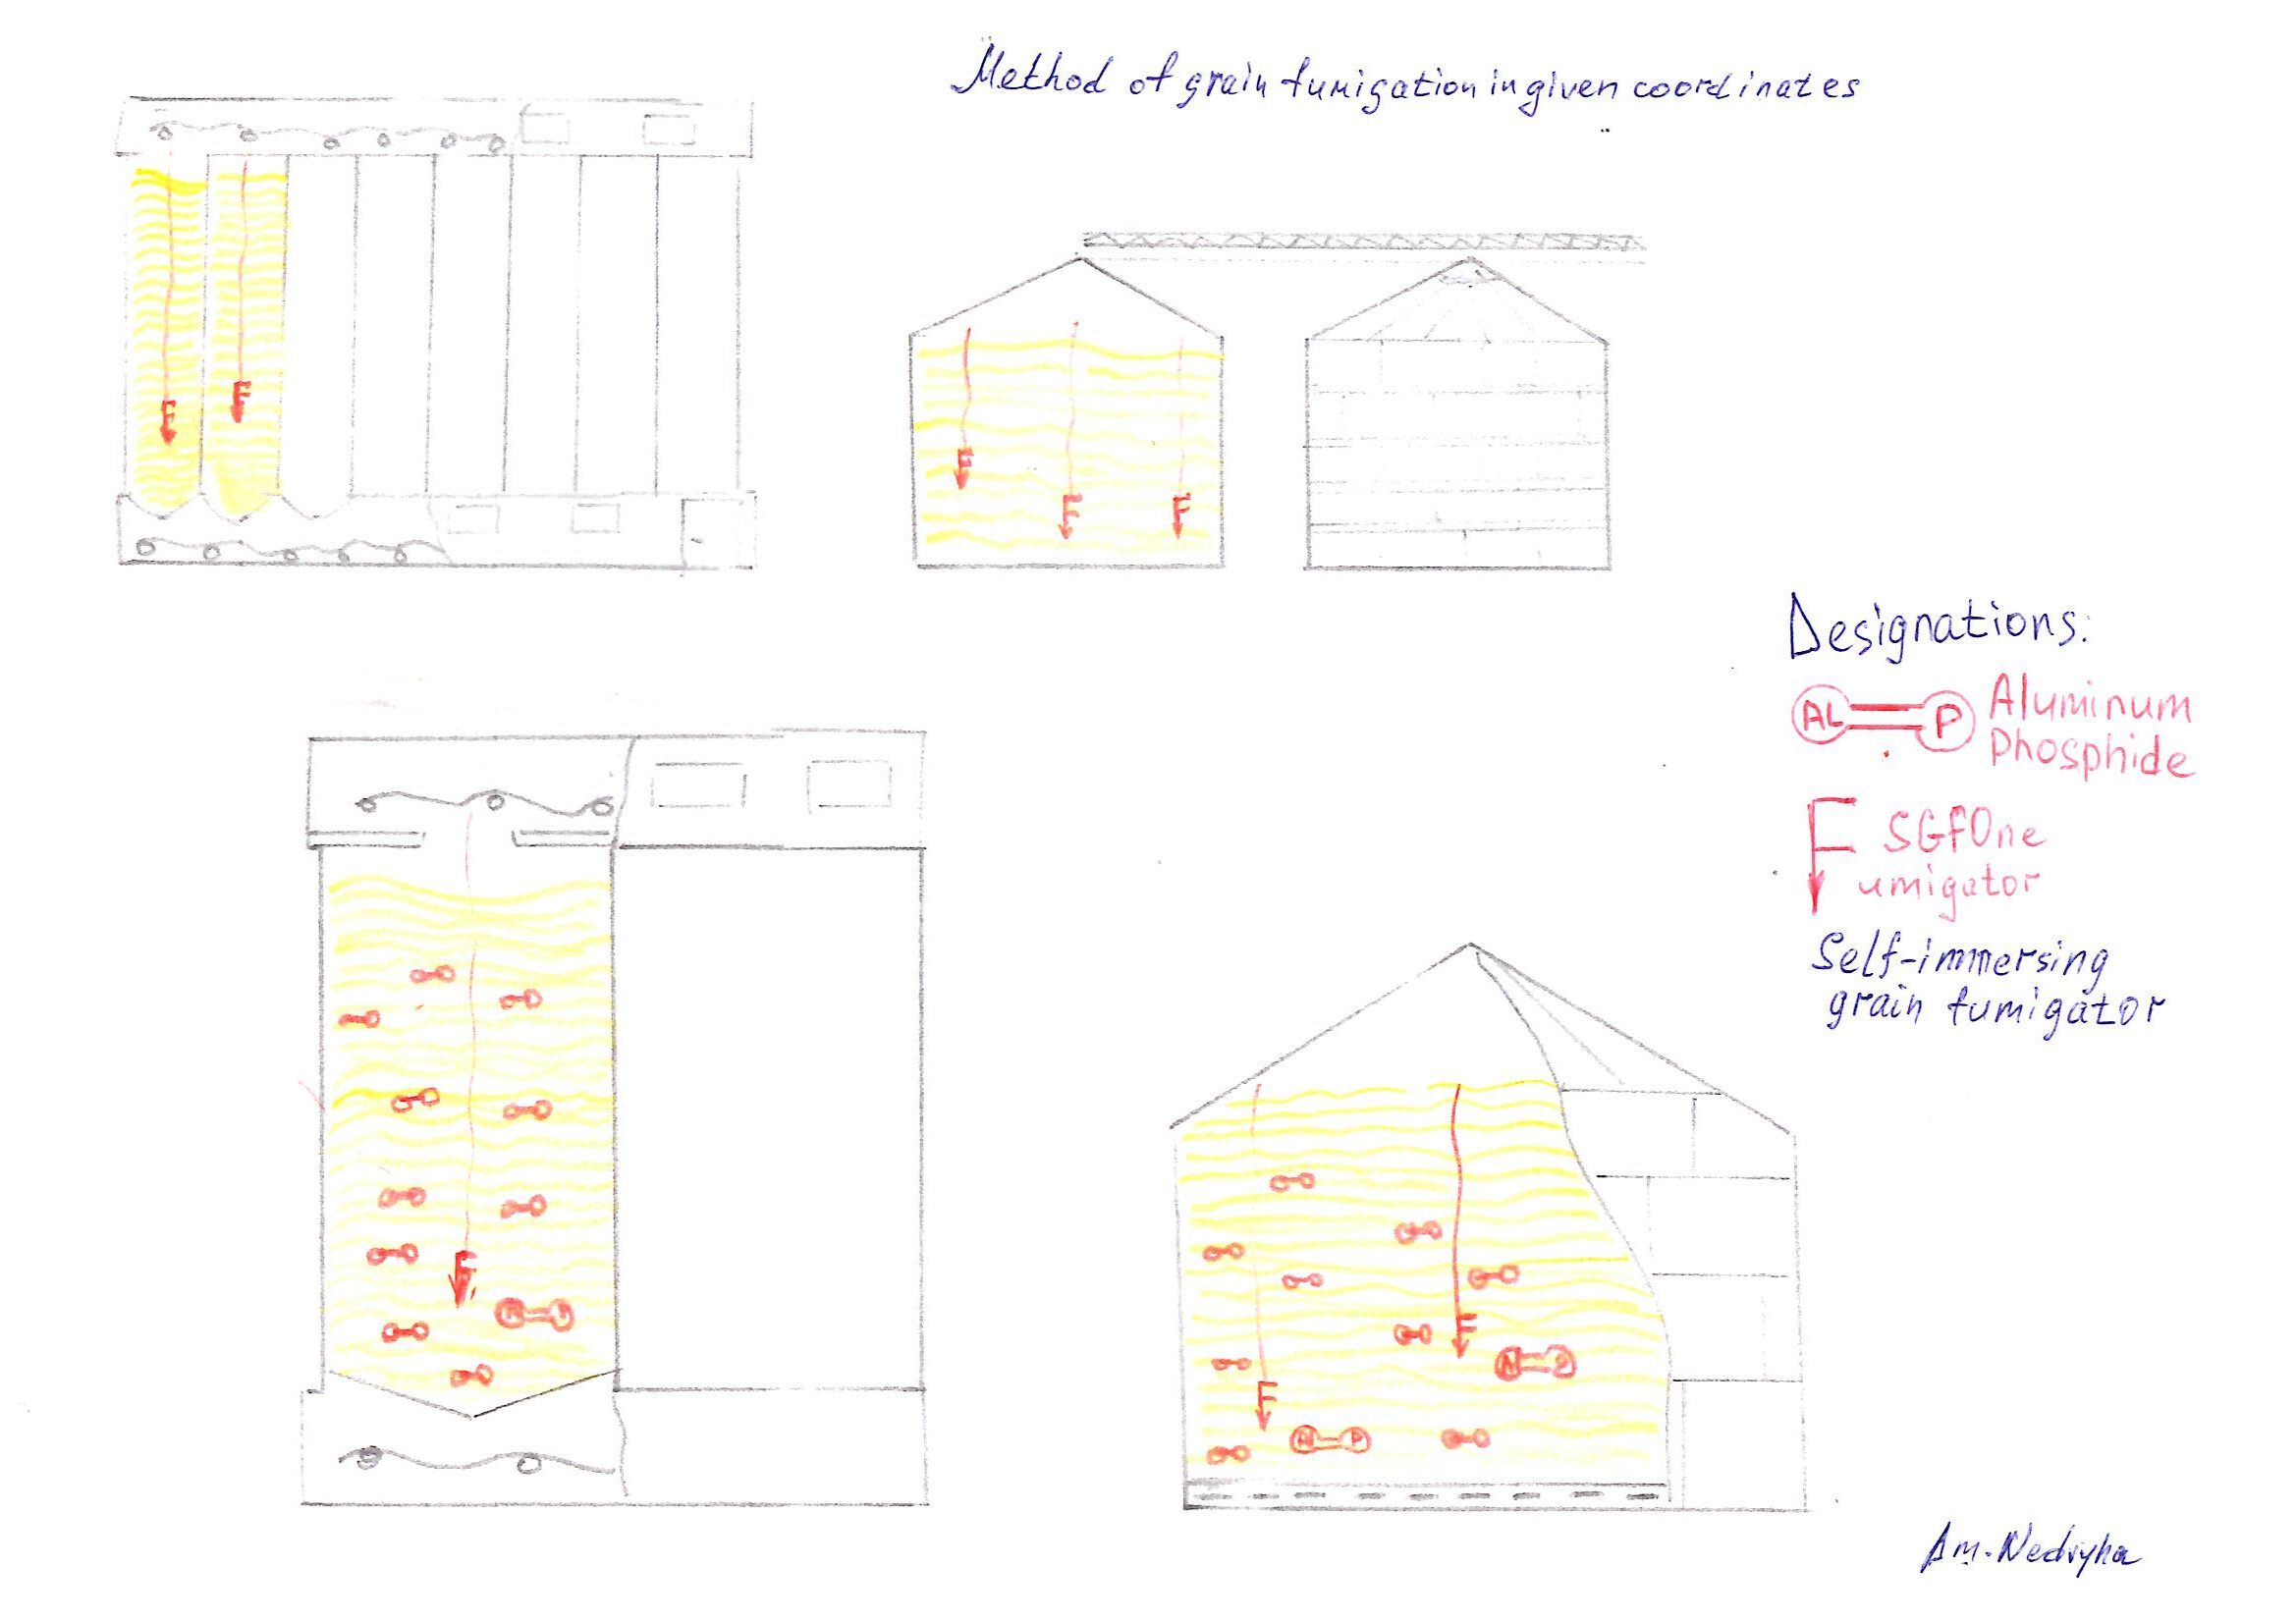 Method of grain fumigation in given coordinates
Designations:
AL P Aluminum
Phosphide
F SGFOne
umigator
Self-immersing
grain fumigator
F
F
F
F
F
F
F
F
Al P